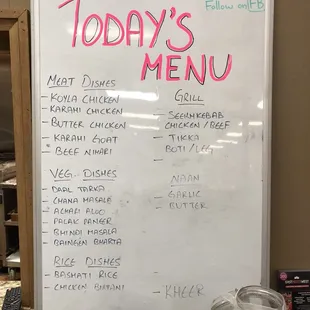 TODAY'S
MENU
Follow on FB
MEAT DISHES
- KOYLA CHICKEN
- KARAHI CHICKEN
- BUTTER CHICKEN
- KARAHI GOAT
- BEEF NIHARI
VEG. DISHES
- DAAL TARKA
- CHANA MASALA
- ACHARI ALOO
- PALAK PANEER
- BHINDI MASALA
- BAINGEN BHARTA
RICE DISHES
- BASMATI RICE
- CHICKEN BIRYANI
GRILL
- SEEKH KEBAB
CHICKEN / BEEF
- TIKKA
BOTI / LEG
-
NAAN
- GARLIC
- BUTTER
-
-
- KHEER